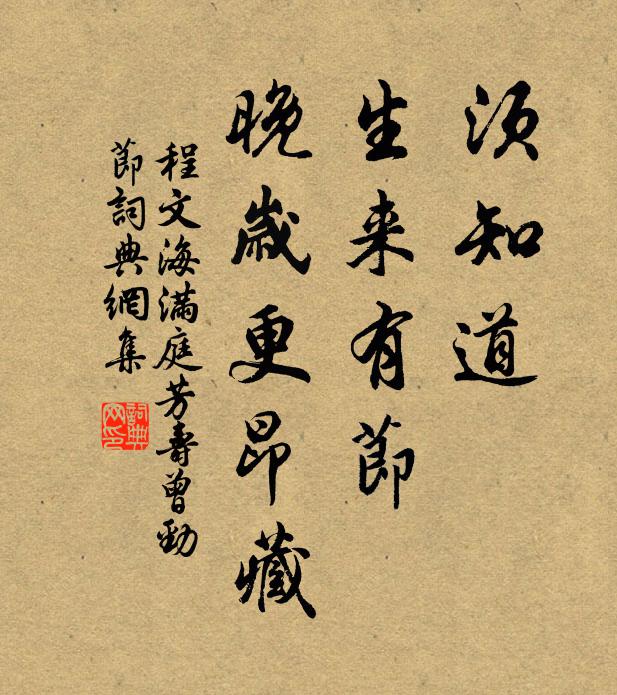 須知道
生来有莭
晚歲更昂藏
程文海滿庭芳壽曾勁
莭詞典網集
詞典网印